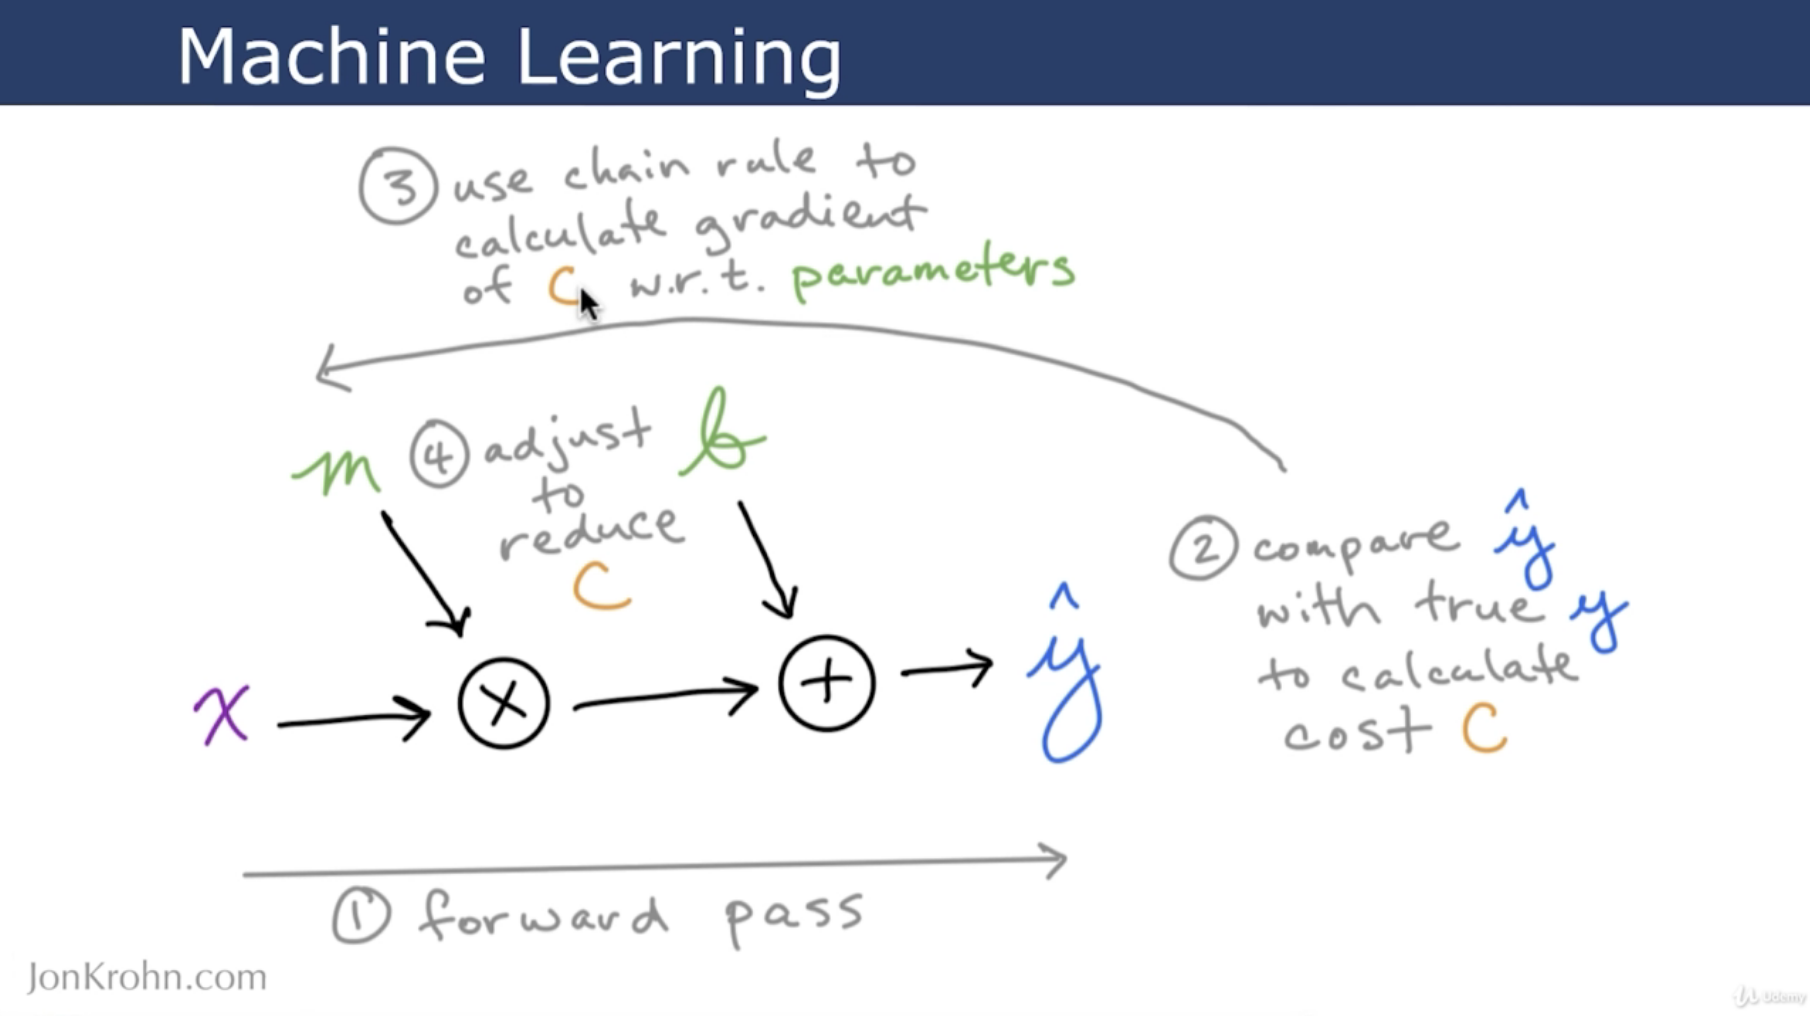 Machine Learning
③ use chain rule to
calculate gradient
of C w.r.t. parameters
m
④ adjust
to
reduce
C
b
② compare ŷ
with true y
to calculate
cost C
x
×
+
ŷ
① forward pass
JonKrohn.com
Udemy